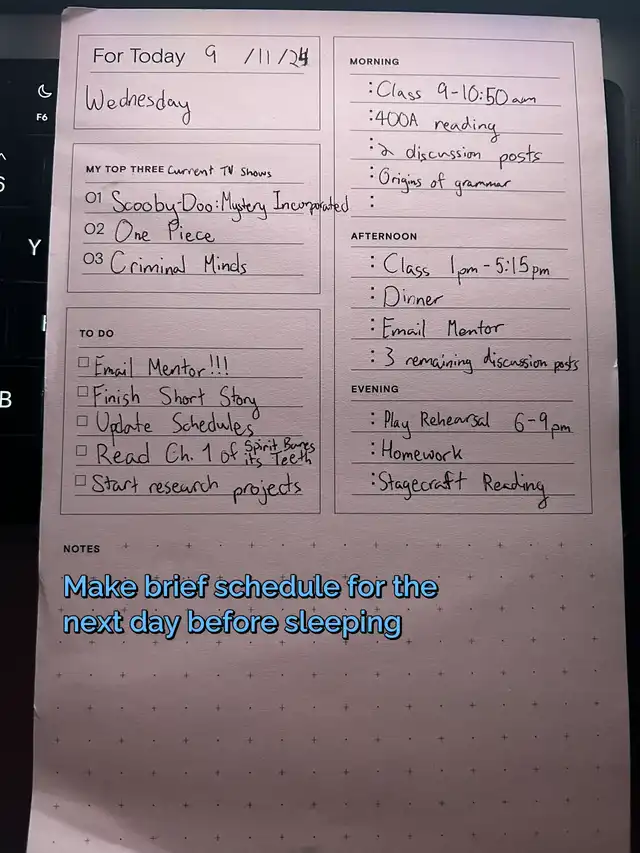 For Today 9 /11/24
Wednesday
MY TOP THREE Current TV Shows
01 Scooby-Doo: Mystery Incorporated
02 One Piece
03 Criminal Minds
TO DO
Email Mentor!!!
Finish Short Story
Update Schedules
Read Ch. 1 of Spirit Bares
its Teeth
Start research projects
MORNING
: Class 9-10:50am
: 400A reading
: 2 discussion posts
: Origins of grammar
:
AFTERNOON
: Class 1pm-5:15pm
: Dinner
: Email Mentor
: 3 remaining discussion posts
EVENING
: Play Rehearsal 6-9pm
: Homework
: Stagecraft Reading
NOTES
Make brief schedule for the
next day before sleeping
F6
6
Y
B